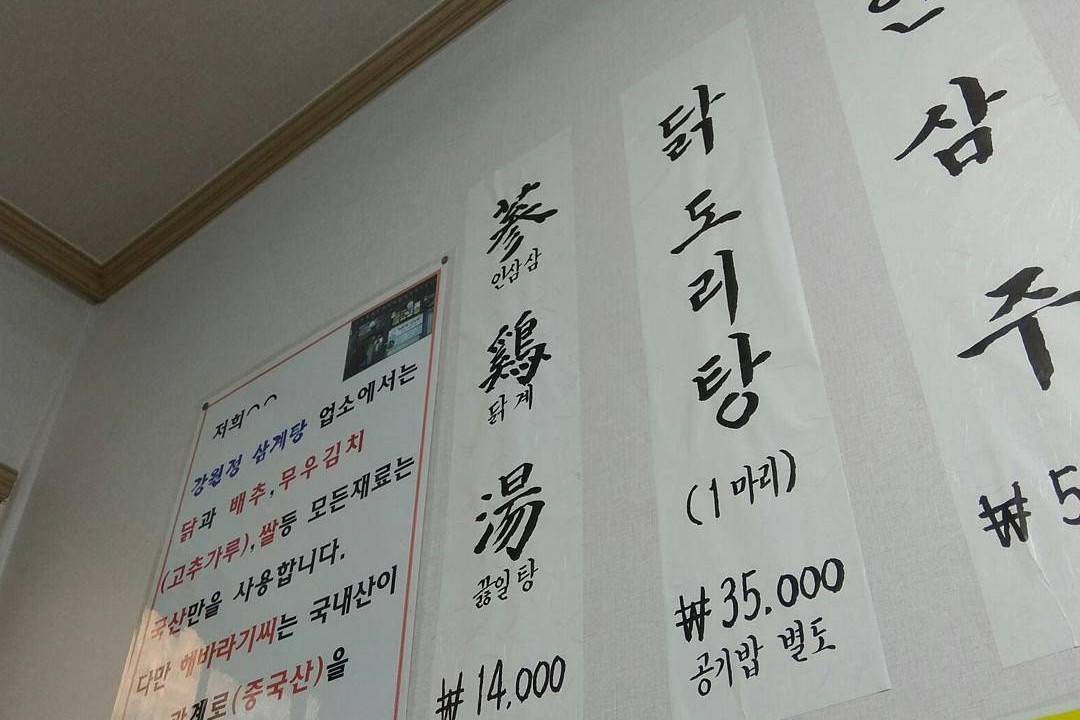 저희^^
강원정 삼계탕 업소에서는
닭과 배추,무우김치
(고추가루),쌀등 모든재료는
국산만을 사용합니다.
다만 해바라기씨는 국내산이
관계로(중국산)을
蔘
인삼삼
鷄
닭계
湯
끓일탕
₩14,000
닭
도
리
탕
(1마리)
₩35.000
공기밥 별도
인
삼
주
₩5